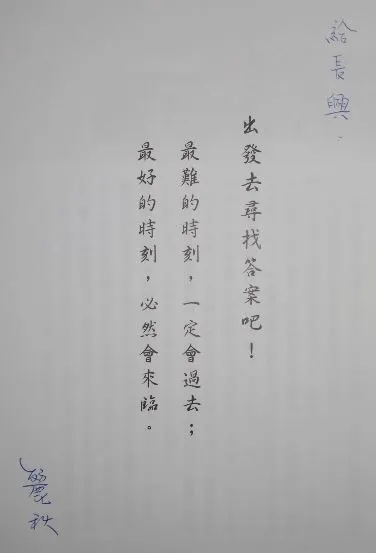 給長興：
出發去尋找答案吧！
最難的時刻，一定會過去；
最好的時刻，必然會來臨。
麗秋